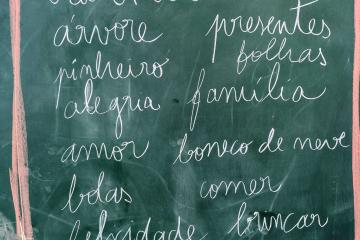 árvore
pinheiro
alegria
amor
bolas
felicidade
presentes
folhas
família
boneco de neve
comer
brincar